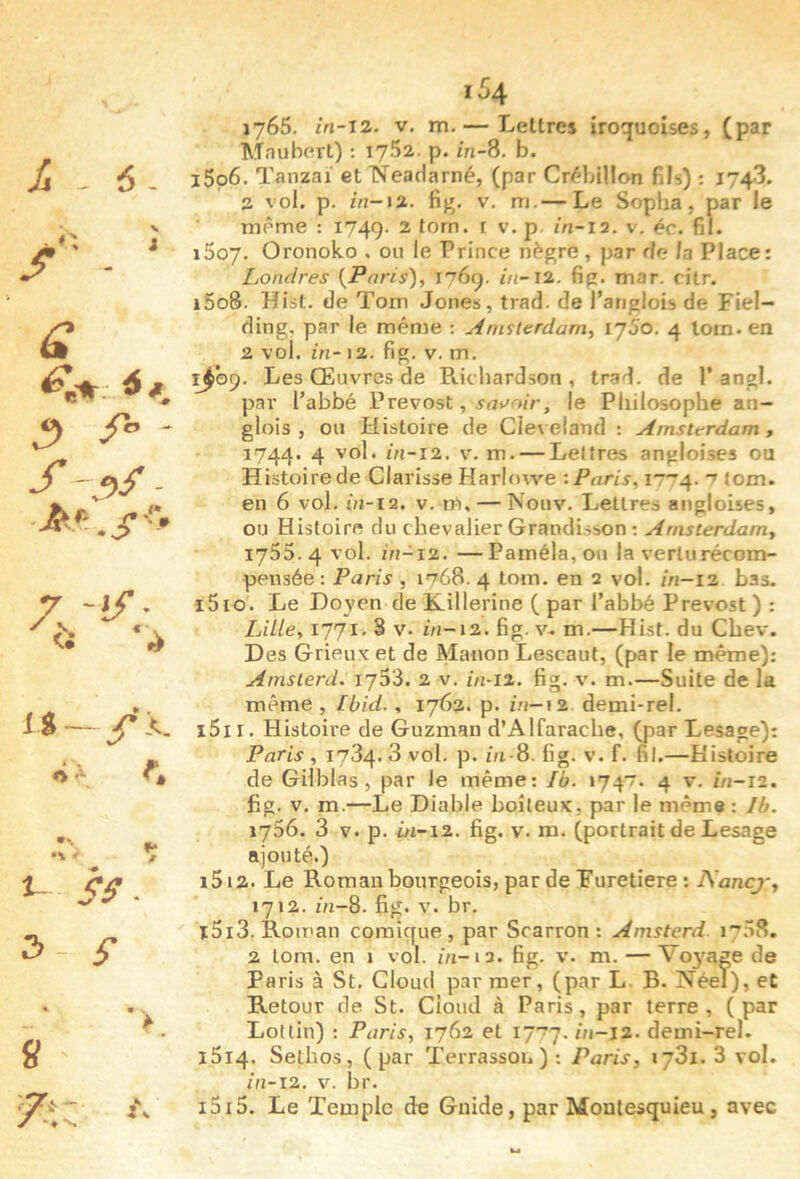 154
1765. in-12. v. m. — Lettres iroquoises, (par
Maubert) : 1752. p. in-8. b.
1506. Tanzaï et Neadarné, (par Crébillon fils) : 1743.
2 vol. p. in-12. fig. v. m. — Le Sopha, par le
même : 1749. 2 tom. 1 v. p. in-12. v. éc. fil.
1507. Oronoko, ou le Prince nègre, par de la Place:
Londres (Paris), 1769. in-12. fig. mar. citr.
1508. Hist. de Tom Jones, trad. de l'anglois de Fiel-
ding, par le même : Amsterdam, 1750. 4 tom. en
2 vol. in-12. fig. v. m.
1509. Les Œuvres de Richardson, trad. de l'angl.
par l'abbé Prevost, savoir, le Philosophe an-
glois, ou Histoire de Cleveland : Amsterdam,
1744. 4 vol. in-12. v. m. — Lettres angloises ou
Histoire de Clarisse Harlowe : Paris, 1774. 7 tom.
en 6 vol. in-12. v. m. — Nouv. Lettres angloises,
ou Histoire du chevalier Grandisson : Amsterdam,
1755. 4 vol. in-12. — Paméla, ou la vertu récom-
pensée : Paris, 1768. 4 tom. en 2 vol. in-12 bas.
1510. Le Doyen de Killerine (par l'abbé Prevost) :
Lille, 1771. 3 v. in-12. fig. v. m.—Hist. du Chev.
Des Grieux et de Manon Lescaut, (par le même):
Amsterd. 1753. 2 v. in-12. fig. v. m.—Suite de la
même, Ibid., 1762. p. in-12. demi-rel.
1511. Histoire de Guzman d'Alfarache, (par Lesage):
Paris, 1734. 3 vol. p. in-8. fig. v. f. fil.—Histoire
de Gilblas, par le même: Ib. 1747. 4 v. in-12.
fig. v. m.—Le Diable boîteux, par le même : Ib.
1756. 3 v. p. in-12. fig. v. m. (portrait de Lesage
ajouté.)
1512. Le Roman bourgeois, par de Furetiere : Nancy,
1712. in-8. fig. v. br.
1513. Roman comique, par Scarron : Amsterd. 1758.
2 tom. en 1 vol. in-12. fig. v. m. — Voyage de
Paris à St. Cloud par mer, (par L. B. Néel), et
Retour de St. Cloud à Paris, par terre, (par
Lottin) : Paris, 1762 et 1777. in-12. demi-rel.
1514. Sethos, (par Terrasson) : Paris, 1731. 3 vol.
in-12. v. br.
1515. Le Temple de Gnide, par Montesquieu, avec